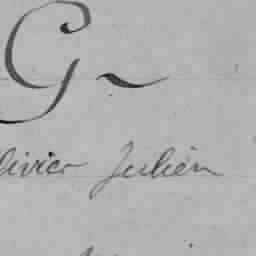 G
livier Julien